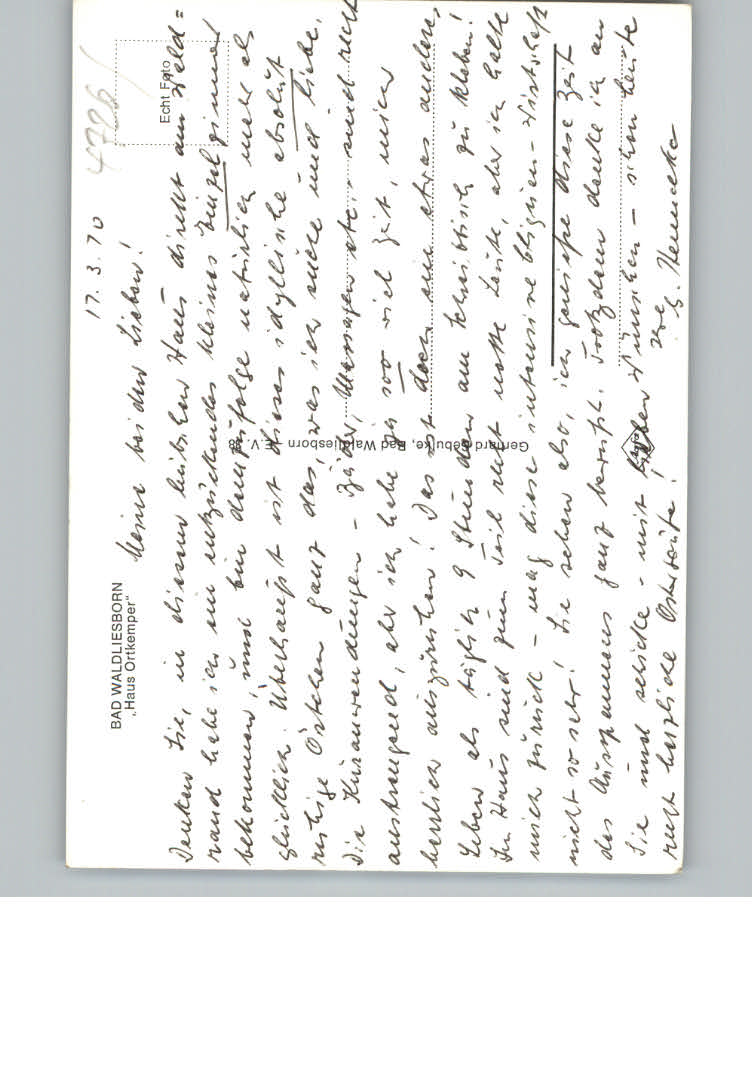 BAD WALDLIESBORN
„Haus Ortkemper"
Echt Foto
4726/
17.3.70
Meine beiden Lieben!
Denken Sie, in diesem hübschen Haus direkt am Wald=
rand habe ich ein entzückendes kleines Einzelzimmer
bekommen, und bin demzufolge natürlich mehr als
glücklich. Überhaupt ist dieses idyllische absolut
ruhige Örtchen ganz das, was ich suche und liebe.
Die Kuranwendungen – Bäder, Massagen etc. sind recht
anstrengend, aber ich habe ja soo viel Zeit, mich
herrlich auszuruhen! Das ist doch ein etwas anderes
Leben als täglich 9 Stunden am Schreibtisch zu kleben!
Im Haus sind zum Teil recht nette Leute, aber ich halte
mich zurück – mag diese intensive Cliquen-Wirtschaft
nicht so sehr! Sie sehen also, ich genieße diese Zeit
des Ausspannens ganz bewußt. Trotzdem denke ich an
Sie und schicke – mit lieben Wünschen – schon heute
recht herzliche Ostergrüße! Ihre
Gerhard Gebulke, Bad Waldliesborn – E.V. 38